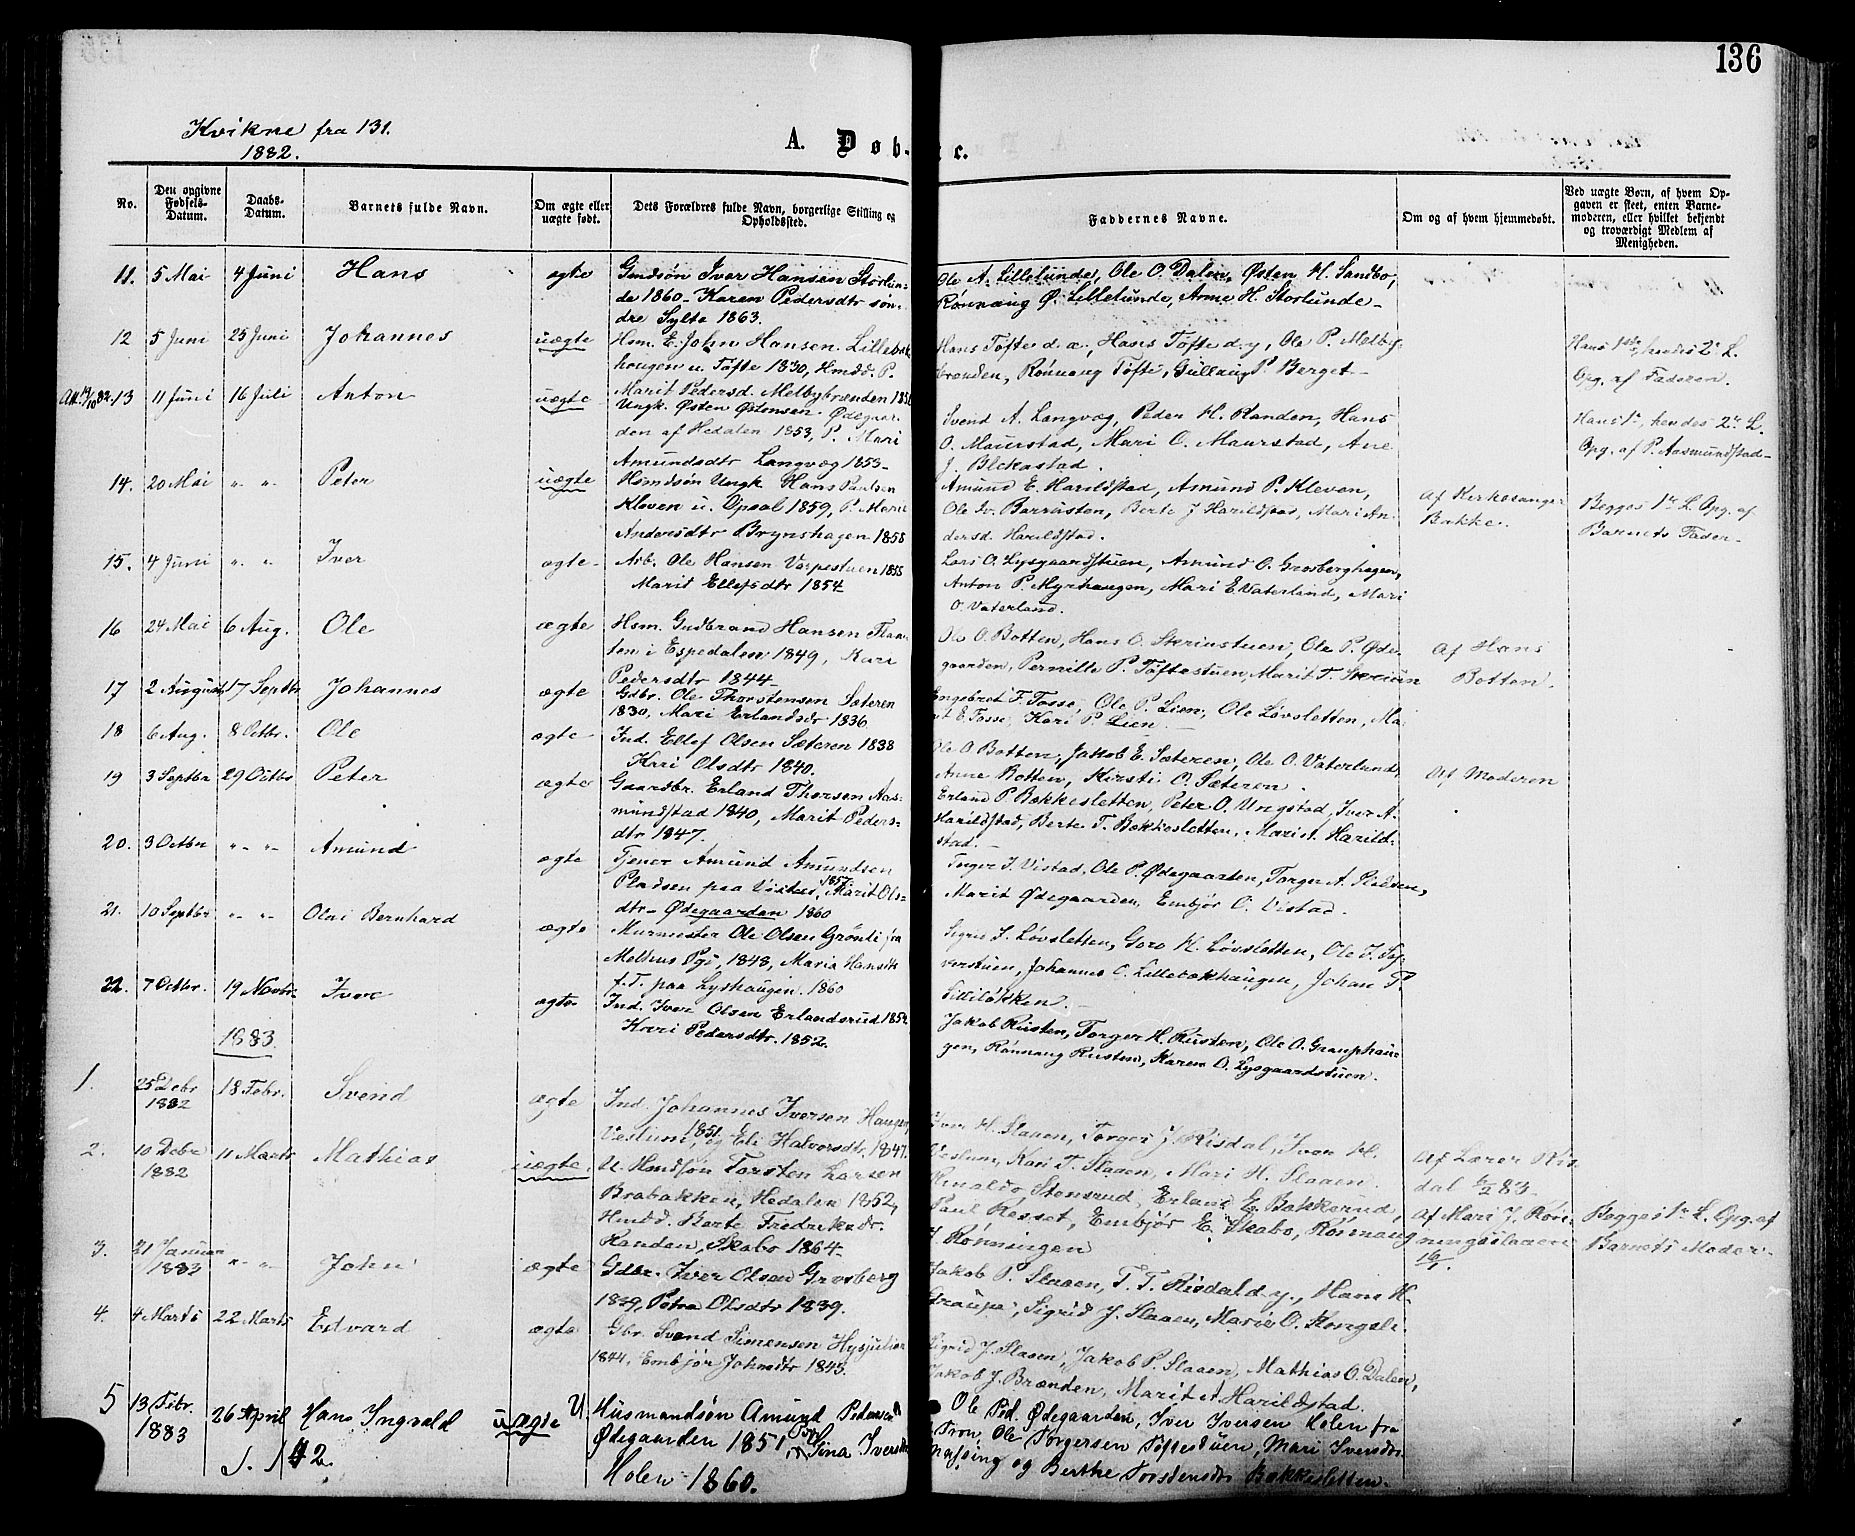 136
Kvikne fra 131.
1882.
A. Døb-
te.
No.
Den opgivne Fødsels-Datum.
Daabs-Datum.
Barnets fulde Navn.
Om ægte eller uægte født.
Dets Forældres fulde Navn, borgerlige Stilling og Opholdssted.
Faddernes Navne.
Om og af hvem hjemmedøbt.
Ved uægte Børn, af hvem Opgaven er skeet, enten Barnemoderen, eller hvilket bekjendt og troværdigt Medlem af Menigheden.
11. 5 Mai 4 Juni Hans ægte
Gmdsøn Iver Hansen Storlun-
de 1860 - Karen Pedersdtr søn-
dre Sylte 1863.
Ole A. Lillelunde, Ole O. Dalen, Østen H. Sandbo,
Rønnaug Ø. Lillelunde, Anne H. Storlunde -
12 5 Juni 25 Juni Johannes uægte
Hsm. E. John Hansen Lillebæk-
haugen u. Tofte 1830, Hmdd. P.
Marit Pedersd. Melbybrænden
Hans Tofte d.æ., Hans Tofte d.y., Ole P. Melby-
brænden, Rønnaug Tofte, Gullaug P. Berget -
Hans 1ste, hendes 2. L.
Opg. af Faderen.
Att. 13 11 Juni 16 Juli Anton uægte
Ungk. Østen Østensen Ødegaar-
den af Hedalen 1853, P. Mari
Amundsdtr Langvæg 1853 -
Svend A. Langvæg, Peder H. Randen, Hans
O. Maurstad, Mari O. Maurstad, Ane
J. Blekastad.
Hans 1ste, hendes 2. L.
Opg. af P. Aasmundstad -
14. 20 Mai " " Peter uægte
Hsmdsøn Ungk. Hans Paulsen
Kleven u. Opsal 1859, P. Marie
Andersdtr Brynshagen 1858
Amund E. Harildstad, Amund P. Kleven,
Ole Iv. Barrusten, Berte J Harildstad, Mari An-
dersd. Harildstad.
Af Kirkesanger
Bakke.
Begges 1ste L. Opg. af
Barnets Fader -
15. 4 Juni " " Iver ægte
Arb. Ole Hansen Vaspestuen 1855
Marit Ellefsdtr 1854
Lars O. Lysgaardstuen, Amund O. Grosberghagen,
Anton P. Myrhaugen, Mari E. Vaterland, Mari
O. Vaterland.
16 24 Mai 6 Aug. Ole ægte
Hsm. Gudbrand Hansen Flaa-
ten i Espedalen 1849, Kari
Pedersdtr 1844
Ole O. Botten, Hans O. Skriustuen, Ole P. Øde-
gaarden, Pernille P. Toftestuen, Marit T. Skriun
Af Hans
Botten.
17 2 August 17 Septbr Johannes ægte
Gdbr. Ole Thorstensen Sæteren
1830, Mari Erlandsdr 1836
Engebret F. Fosse, Ole P. Lien, Ole Løvsletten, Ma-
rit E. Fosse, Kari P. Lien -
18 6 Aug. 8 Octbr. Ole ægte
Ind. Ellef Olsen Sæteren 1838
Kari Olsdtr 1840.
Ole O Botten, Jakob E. Sæteren, Ole O. Vaterlund,
Anne Botten, Kirsti O. Sæteren.
Af Moderen
19 3 Septbr 29 Octbr Peter ægte
Gaardbr. Erland Thorsen Aas-
mundstad 1840, Marit Peders-
dtr 1847.
Erland P. Bakkesletten, Peter O. Ungstad, Iver A.
Harildstad, Berte T. Bakkesletten, Mari A. Harild-
stad.
20. 3 Octbr " " Amund ægte
Tjener Amund Amundsen
Pladsen paa Vistad 1857, Marit Ols-
dtr - Ødegaarden 1860
Torger I. Vistad, Ole P. Ødegaarten, Torger A. Pladsen,
Marit Ødegaarden, Embjør O. Vistad.
21. 10 Septbr " " Olai Bernhard ægte
Murmester Ole Olsen Grønli fra
Melhus Pgj. 1848, Maria Hansdtr
f.T. paa Lyshaugen 1860
Sigri J. Løvsletten, Goro H. Løvsletten, Ole J. Sy-
verstuen, Johannes O. Lillebækhaugen, Johan P.
Lilliløkken
22. 7 Octbr. 19 Novbr. Iver ægte
Ind. Iver Olsen Erlandsrud 1852
Kari Pedersdtr. 1852.
Jakob Rusten, Torger H. Rusten, Ole O. Grauphau-
gen, Rønnaug Rusten, Karen O. Lysgaardstuen.
1883
1. 25 Debr 1882 18 Febr. Svend ægte
Ind. Johannes Iversen Haugen,
Veslum, 1851 og Eli Halvorsdtr. 1847.
Iver H. Slaaen, Torger J. Risdal, Iver H.
Veslum, Kari T. Slaaen, Mari H. Slaaen.
Af Lærer Ris-
dal 6/2 83.
2. 10 Debr 1882 11 Marts Mathias uægte
U. Hmdsøn Torsten Larsen
Brabakken, Hedalen 1852,
Hmdd. Berte Fredriksdr.
Randen, Skabo 1864
Rinaldo Stensrud, Erland E. Bakkerud,
Paul Resset, Embjør E. Skabo, Rønnaug
J Rønningen
Af Mari J. Røn-
ningsslaaen
Begges 1ste L. Opg. af
Barnets Moder.
3. 21 Januar 1883 " " John ægte
Gdbr. Iver Olsen Grosberg
1839, Petra Olsdtr 1839.
Jakob P. Slaaen, T. T. Risdal d.y., Hans H.
Graupe, Sigrid J. Slaaen, Mari O. Kongsli.
4. 4 Marts 22 Marts Edvard ægte
Gbr. Svend Simensen Hysjulien
1844, Embjør Johnsdtr 1845.
Sigrid J. Slaaen, Jakob P. Slaaen, Mathias O. Dalen,
Jakob J. Brænden, Marit A Harildstad.
5 13 Febr. 1883 26 April Hans Ingvald uægte
U. Husmandsøn Amund Pedersen
Ødegaarden 1851, Pige Sina Iversdtr
Holen 1860.
Ole Ped. Ødegaarden, Iver Iversen Holen fra
Fron, Ole Torgersen Toftestuen, Mari Iversdtr
og Berthe Torstensdtr Bakkesletten.